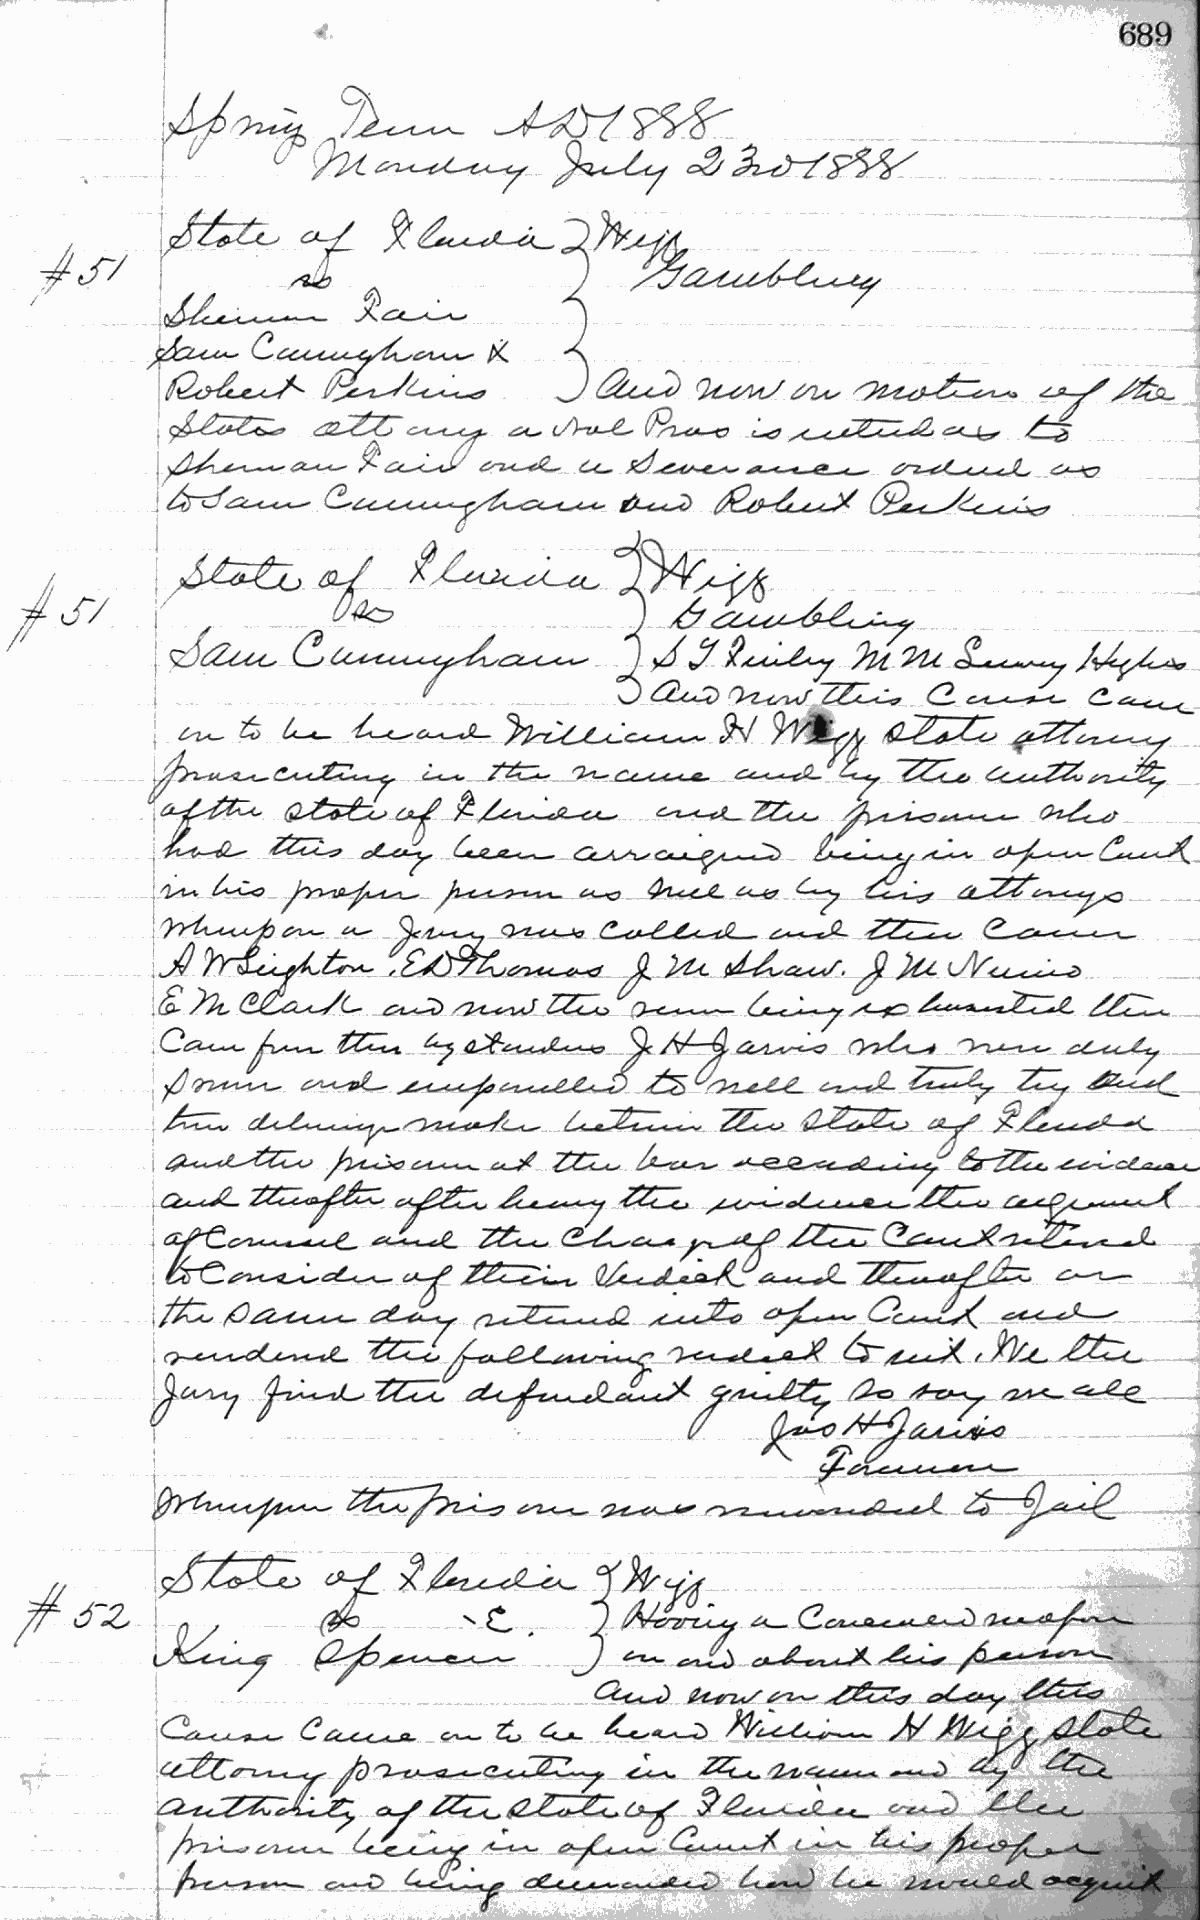 689
Spring Term AD 1888
Monday July 23rd 1888
State of Florida } Wigg
#51 vs Gambling
Sherman Fair
Sam Cunningham &
Robert Perkins } And now on motion of the
States attorny a Nol Pros is entred as to
Sherman Fair and a Severance ordred as
to Sam Cunningham and Robert Perkins
State of Florida } Wigg
#51 vs Gambling
Sam Cunningham } S Y Finley M M Hughes
And now this Cause came
on to be heard William H Wigg State attorny
prosecuting in the name and by the authority
of the State of Florida and the prisoner who
had this day been arraigned being in open Court
in his proper person as well as by his attorneys
Whereupon a Jury was called and then came
A W Leighton. E D Thomas J M Shaw. J M
E M Clark and now the being exhausted then
Came from the bystanders J H Jarvis who were duly
sworn and empanelled to well and truly try and
true deliverance make between the State of Florida
and the prisoner at the bar according to the evidence
and thereafter after hearing the evidence the argument
of Counsel and the Charge of the Court retired
to Consider of their Verdict and thereafter on
the same day returned into open Court and
rendered the following verdict to wit. We the
Jury find the defendant guilty so say we all
Jos H Jarvis
Foreman
Whereupon the prisoner was remanded to Jail
State of Florida } Wigg
#52 vs E. } Having a Concealed weapon
King Spencer } on and about his person
And now on this day this
Cause came on to be heard William H Wigg State
attorny prosecuting in the name and by the
authority of the State of Florida and the
prisoner being in open Court in his proper
person and being demanded how he would acquit